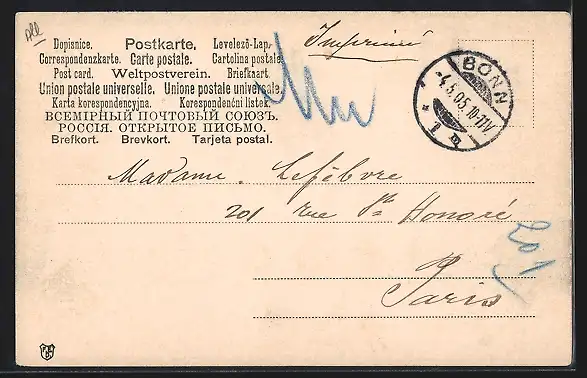 All
Dopisnice. Postkarte. Levelező-Lap.
Correspondenzkarte. Carte postale. Cartolina postale
Post card. Weltpostverein. Briefkaart.
Union postale universelle. Unione postale universale.
Karta korespondencyjna. Korespondenční listek.
ВСЕМІРНЫЙ ПОЧТОВЫЙ СОЮЗЪ.
РОССІЯ. ОТКРЫТОЕ ПИСЬМО.
Brefkort. Brevkort. Tarjeta postal.
Imprimé
BONN
-4.5.05.10-11V.
Madame. Lefébvre
201 rue St Honoré
Paris
201